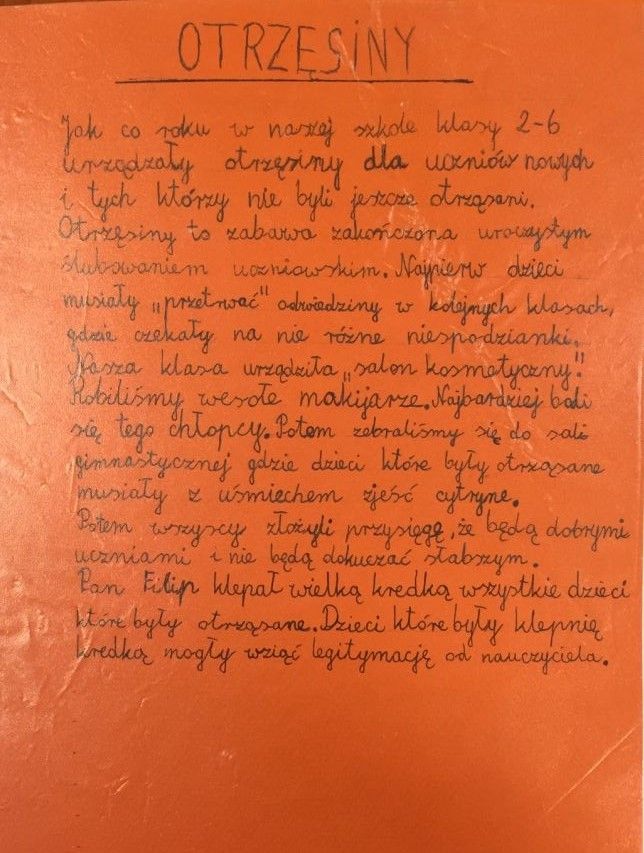 OTRZĘSINY
Jak co roku w naszej szkole klasy 2-6
urządzały otrzęsiny dla uczniów nowych
i tych którzy nie byli jeszcze otrząsani.
Otrzęsiny to zabawa zakończona uroczystym
ślubowaniem uczniowskim. Najpierw dzieci
musiały „przetrwać" odwiedziny w kolejnych klasach,
gdzie czekały na nie różne niespodzianki.
Nasza klasa urządziła „salon kosmetyczny".
Robiliśmy wesołe makijarze. Najbardziej bali
się tego chłopcy. Potem zebraliśmy się do sali
gimnastycznej gdzie dzieci które były otrząsane
musiały z uśmiechem zjeść cytrynę.
Potem wszyscy złożyli przysięgę, że będą dobrymi
uczniami i nie będą dokuczać słabszym.
Pan Filip klepał wielką kredką wszystkie dzieci
które były otrząsane. Dzieci które były klepnię
kredką mogły wziąć legitymację od nauczyciela.